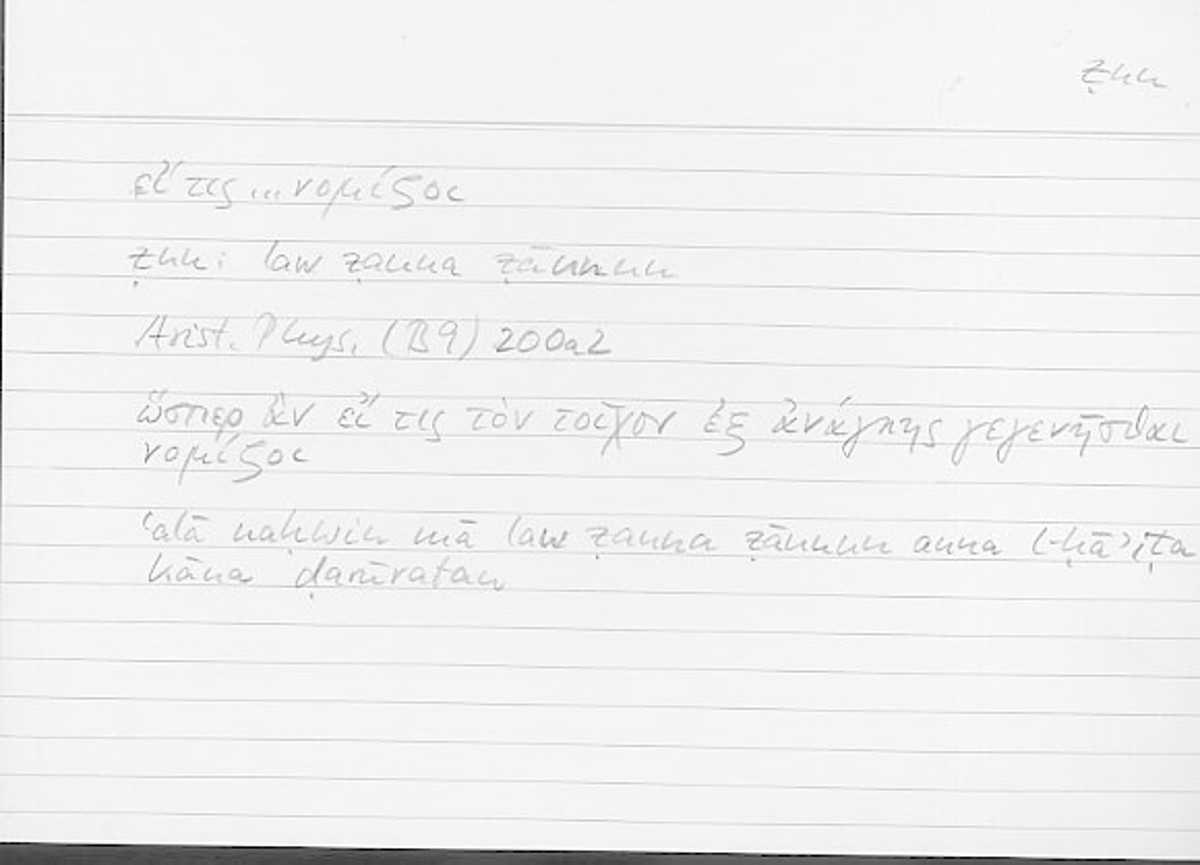 ẓnn
εἴ τις ... νομίζοι
ẓnn: law ẓanna ẓānnun
Arist. Phys. (B9) 200a2
ὥσπερ ἂν εἴ τις τὸν τοῖχον ἐξ ἀνάγκης γεγενῆσθαι
νομίζοι
ʿalā naḥwin mā law ẓanna ẓānnun anna l-ḥāʾiṭa
kāna ḍarūratan